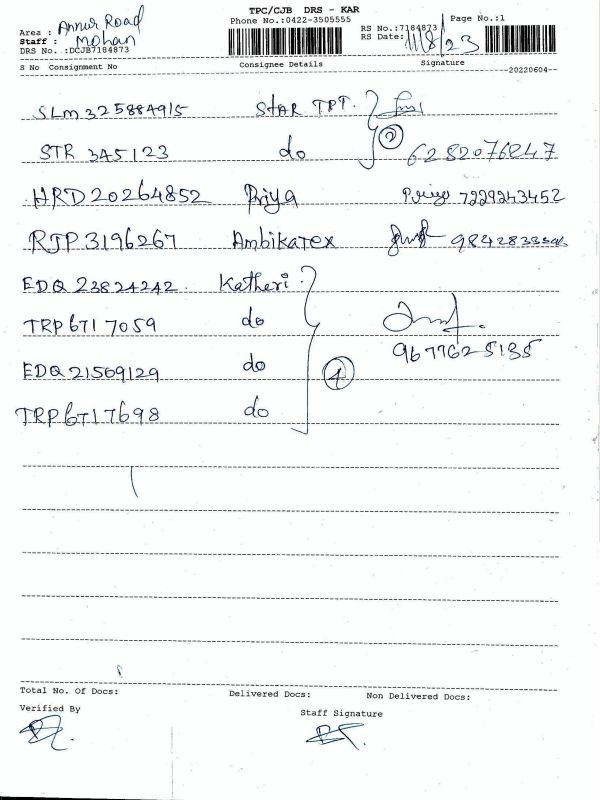 TPC/CJB DRS - KAR
Area : Annur Road Phone No.:0422-3505555 RS No.:7184873 Page No.:1
Staff : Mohan RS Date: 11/8/23
DRS No. :DCJB7184873
S No Consignment No Consignee Details Signature
--20220604--
SLM 325884915 STAR TPT.
STR 345123 do 2 6282076247
HRD 20264852 Priya Priya 7229243452
RJP 3196267 Ambikatex
EDQ 23824242 Katheri
TRP 6717059 do
EDQ 21509129 do 4 9677625135
TRP 6717698 do
Total No. Of Docs: Delivered Docs: Non Delivered Docs:
Verified By Staff Signature